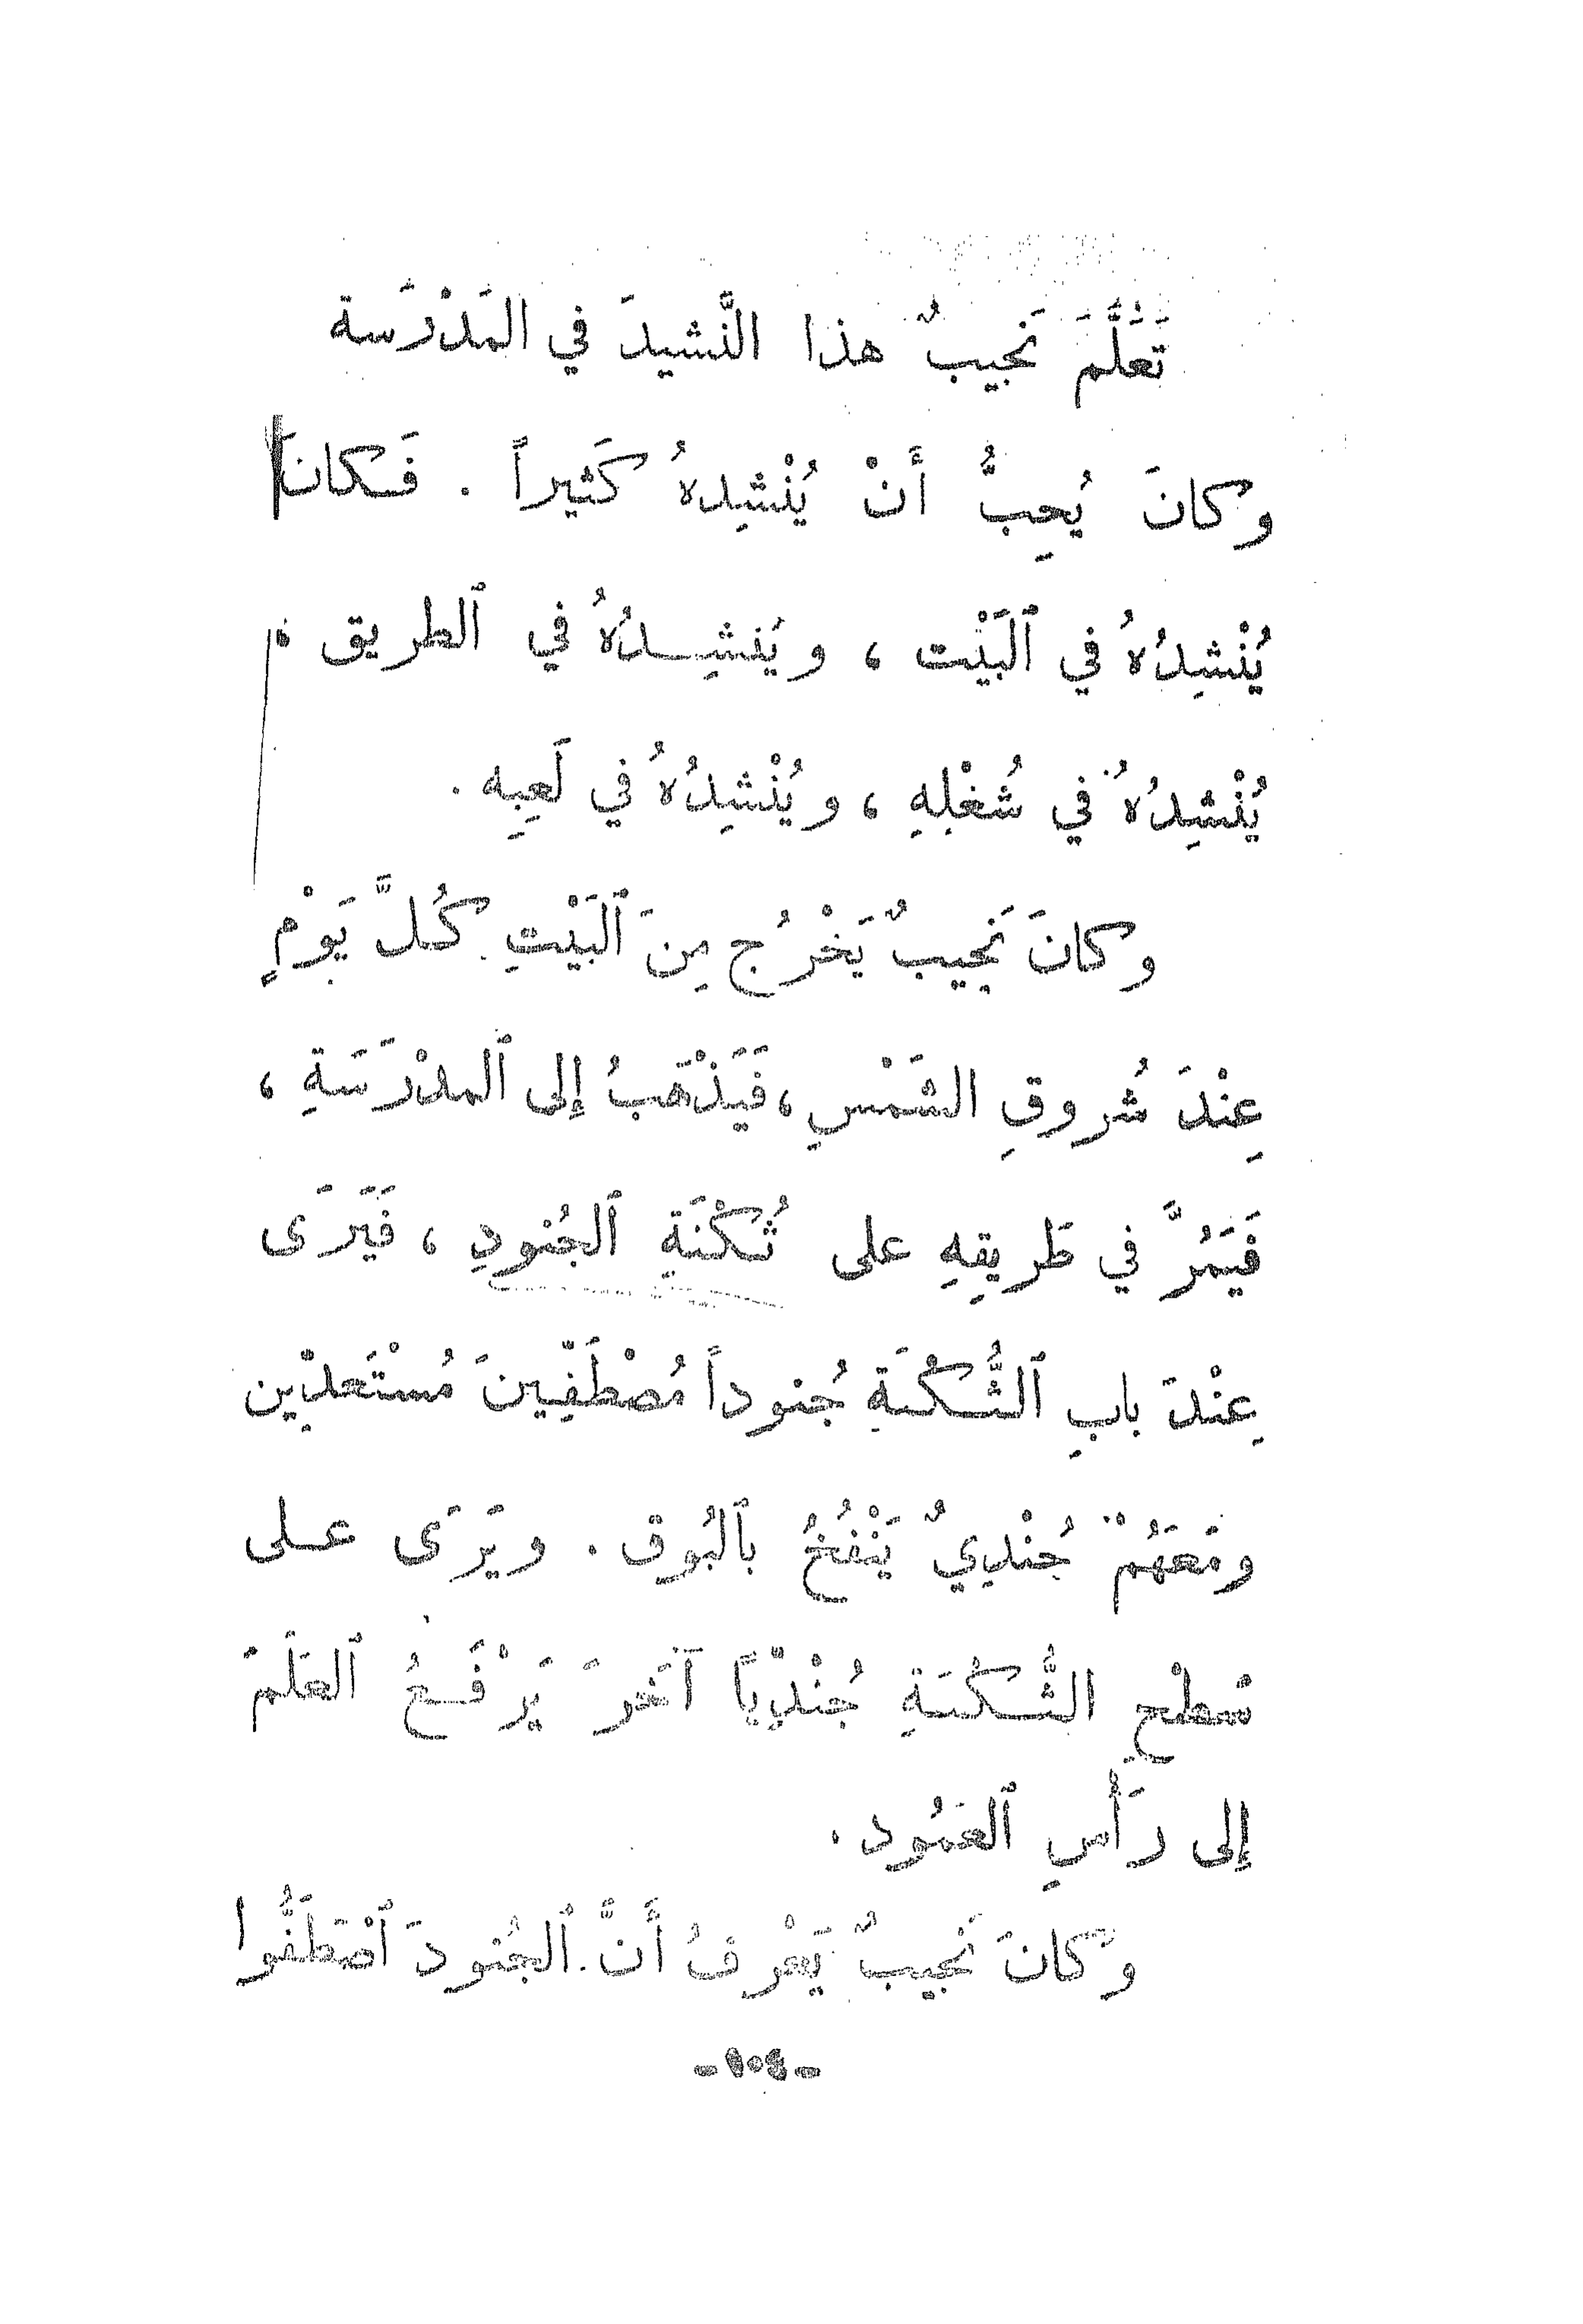 تَعَلَّمَ نَجيبٌ هذا النَّشيدَ في المَدْرَسة
وكانَ يُحِبُّ أَنْ يُنْشِدهُ كَثيراً . فَكانَ
يُنْشِدُهُ في ٱلبَيْت ، ويُنشِدُهُ في ٱلطريق ،
يُنْشِدُهُ في شُغْلِهِ ، ويُنْشِدُهُ في لَعِبِه .
وكانَ نَجيبٌ يَخْرُج مِنَ ٱلبَيْتِ كُلَّ يَوْمٍ
عِنْدَ شُروقِ الشَمْسِ ، فَيَذْهَبُ إلى ٱلمدْرَسَةِ ،
فَيَمُرَّ في طَريقِهِ على ثُكْنَةِ ٱلجُنودِ ، فَيَرَى
عِنْدَ بابِ ٱلثُّكْنَةِ جُنوداً مُصْطَفِّينَ مُسْتَعدِّين
ومَعَهُمْ جُنْدِيٌ يَنْفُخُ بٱلبُوقِ . ويَرَى على
سَطْحِ الثُّكْنَةِ جُنْدِيّاً آخَرَ يَرْفَعُ ٱلعَلَمَ
إلى رَأْسِ ٱلعَمُود .
وكانَ نَجيبٌ يَعْرِفُ أَنَّ ٱلجُنودَ ٱصْطَفُّوا
-١٥٤-